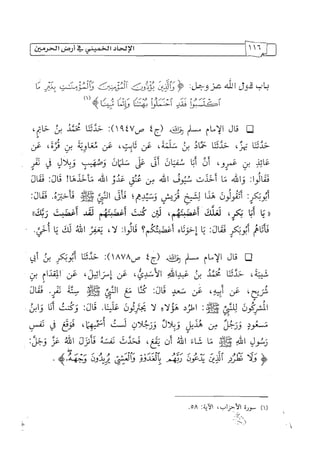 ١١٦ الإلحاد الخميني في أرض الحرمين
باب قول الله عز وجل: ﴿وَالَّذِينَ يُؤْذُونَ الْمُؤْمِنِينَ وَالْمُؤْمِنَاتِ بِغَيْرِ مَا
اكْتَسَبُوا فَقَدِ احْتَمَلُوا بُهْتَانًا وَإِثْمًا مُبِينًا﴾(١)
❑ قال الإمام مسلم رحمه الله (ج٤ ص١٩٤٧): حَدَّثَنَا مُحَمَّدُ بنُ حَاتِمٍ،
حَدَّثَنَا بَهْزٌ، حَدَّثَنَا حَمَّادُ بنُ سَلَمَةَ، عَن ثَابِتٍ، عَن مُعَاوِيَةَ بنِ قُرَّةَ، عَن
عَائِذِ بنِ عَمرٍو، أَنَّ أَبَا سُفيَانَ أَتَى عَلَى سَلمَانَ وَصُهَيبٍ وَبِلالٍ فِي نَفَرٍ
فَقَالُوا: وَاللهِ مَا أَخَذَت سُيُوفُ اللهِ مِن عُنُقِ عَدُوِّ اللهِ مَأخَذَهَا! قَالَ: فَقَالَ
أَبُوبَكرٍ: أَتَقُولُونَ هَذَا لِشَيخِ قُرَيشٍ وَسَيِّدِهِم؟ فَأَتَى النَّبِيَّ ﷺ فَأَخبَرَهُ. فَقَالَ:
«يَا أَبَا بَكرٍ، لَعَلَّكَ أَغضَبتَهُم، لَئِن كُنتَ أَغضَبتَهُم لَقَد أَغضَبتَ رَبَّكَ»
فَأَتَاهُم أَبُوبَكرٍ فَقَالَ: يَا إِخوَتَاه أَغضَبتُكُم؟ قَالُوا: لا، يَغفِرُ اللهُ لَكَ يَا أُخَيَّ.
❑ قال الإمام مسلم رحمه الله (ج٤ ص١٨٧٨): حَدَّثَنَا أَبُوبَكرِ بنُ أَبِي
شَيبَةَ، حَدَّثَنَا مُحَمَّدُ بنُ عَبدِاللهِ الأَسَدِيُّ، عَن إِسرَائِيلَ، عَنِ المِقدَامِ بنِ
شُرَيحٍ، عَن أَبِيهِ، عَن سَعدٍ قَالَ: كُنَّا مَعَ النَّبِيِّ ﷺ سِتَّةَ نَفَرٍ. فَقَالَ
المُشرِكُونَ لِلنَّبِيِّ ﷺ: اطرُد هَؤُلاءِ لا يَجتَرِئُونَ عَلَينَا. قَالَ: وَكُنتُ أَنَا وَابنُ
مَسعُودٍ وَرَجُلٌ مِن هُذَيلٍ وَبِلالٌ وَرَجُلانِ لَستُ أُسَمِّيهِمَا، فَوَقَعَ فِي نَفسِ
رَسُولِ اللهِ ﷺ مَا شَاءَ اللهُ أَن يَقَعَ، فَحَدَّثَ نَفسَهُ فَأَنزَلَ اللهُ عَزَّ وَجَلَّ:
﴿وَلَا تَطْرُدِ الَّذِينَ يَدْعُونَ رَبَّهُم بِالْغَدَاةِ وَالْعَشِيِّ يُرِيدُونَ وَجْهَهُ﴾.
(١) سورة الأحزاب، الآية: ٥٨.